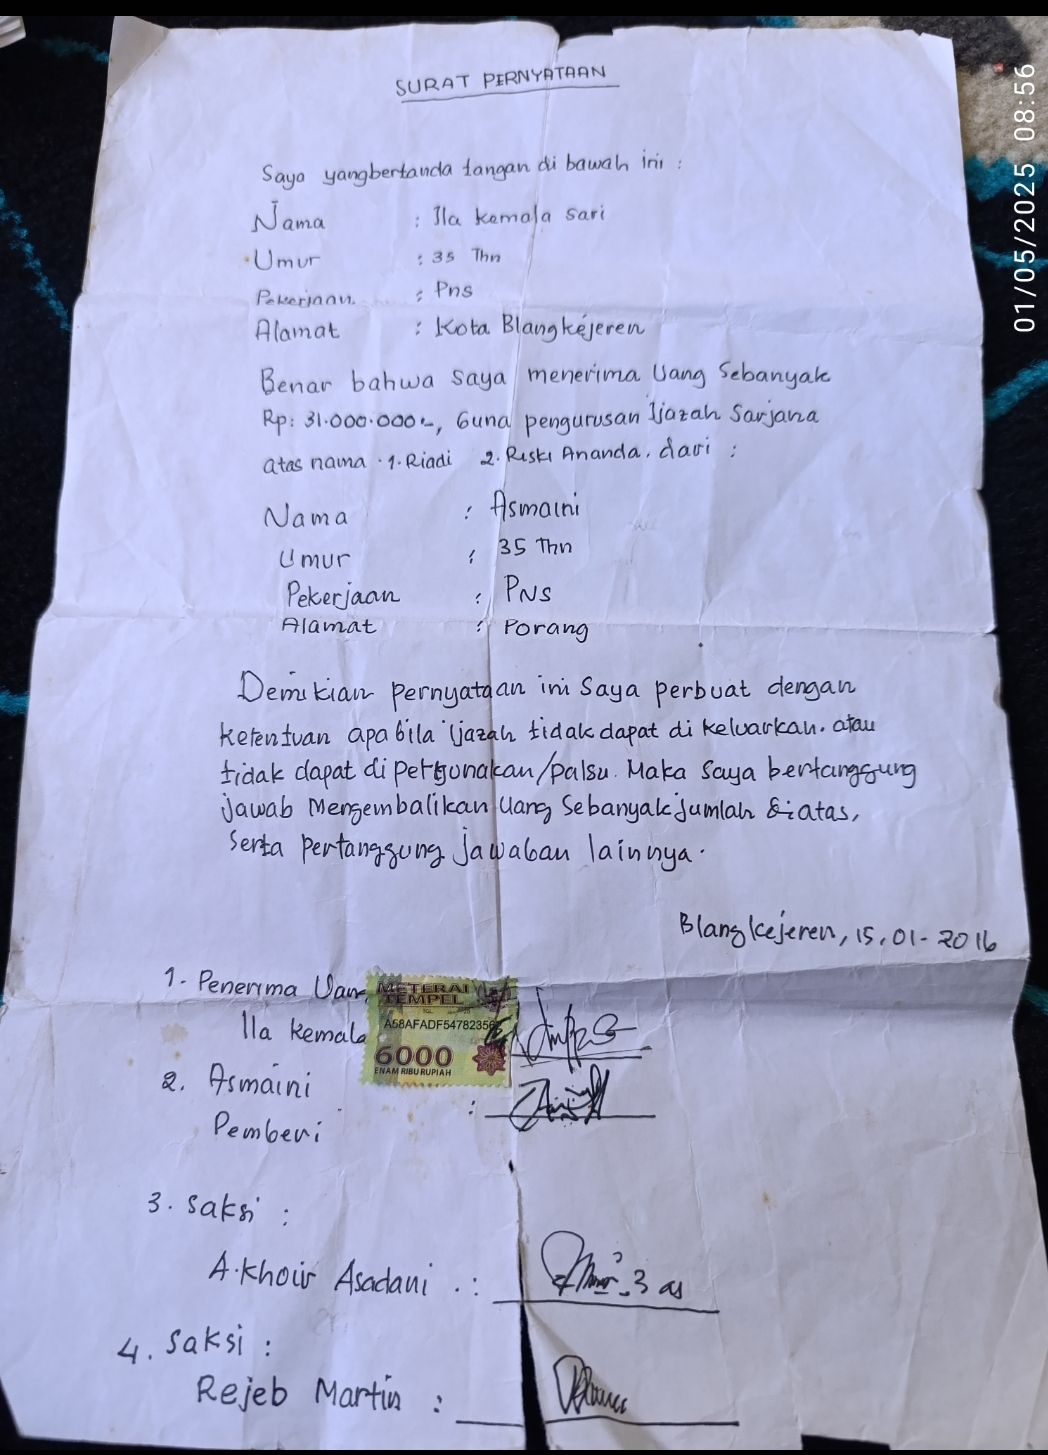 SURAT PERNYATAAN
01/05/2025 08:56
Saya yangbertanda tangan di bawah ini :
Nama : Ila kemala sari
Umur : 35 Thn
Pekerjaan : Pns
Alamat : Kota Blangkejeren
Benar bahwa saya menerima Uang Sebanyak
Rp: 31.000.000,-, Guna pengurusan Ijazah Sarjana
atas nama . 1. Riadi 2. Riski Ananda. dari :
Nama : Asmaini
Umur : 35 Thn
Pekerjaan : PNS
Alamat : Porang
Demikian pernyataan ini Saya perbuat dengan
ketentuan apabila ijazah tidak dapat di keluarkan. atau
tidak dapat di pergunakan/palsu. Maka saya bertanggung
jawab Mengembalikan Uang Sebanyak jumlah di atas,
Serta pertanggung jawaban lainnya.
Blangkejeren, 15, 01- 2016
1. Penerima Uang
METERAI
TEMPEL
Ila kemala
A58AFADF54782356
6000
ENAM RIBU RUPIAH
2. Asmaini
Pemberi :
3. saksi :
A. Khoir Asadani . :
4. Saksi :
Rejeb Martin :